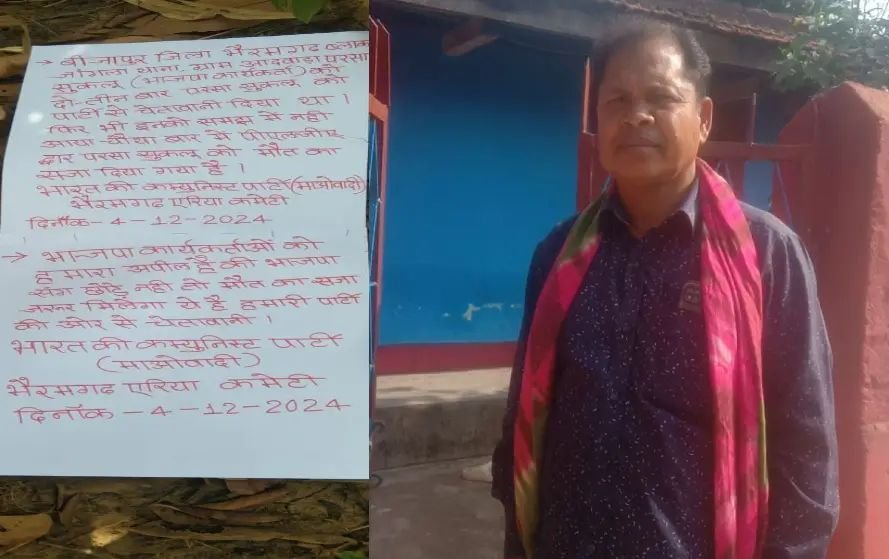 → बीजापुर जिला भैरमगढ ब्लाक
जांगला थाना, ग्राम आदवाडा परसा
सुकलू (भाजपा कार्यकर्ता) को
दो-तीन बार परसा सुकलू को
पार्टी से चेतावानी दिया था।
फिर भी इनकी समझ में नही
आया चौथा बार में पीएलजीए
द्वार परसा सुकलू को मौत का
सजा दिया गया है।
भारत की कम्युनिस्ट पार्टी (माओवादी)
भैरमगढ एरिया कमेटी
दिनाँक- 4-12-2024
→ भाजपा कार्यकर्ताओं को
हमारा अपील है की भाजपा
नही तो मौत का सजा
जरूर मिलेगा ये है हमारी पार्टी
की ओर से चेतावानी।
भारत की कम्युनिस्ट पार्टी
(माओवादी)
भैरमगढ एरिया कमेटी
दिनाँक - 4-12-2024